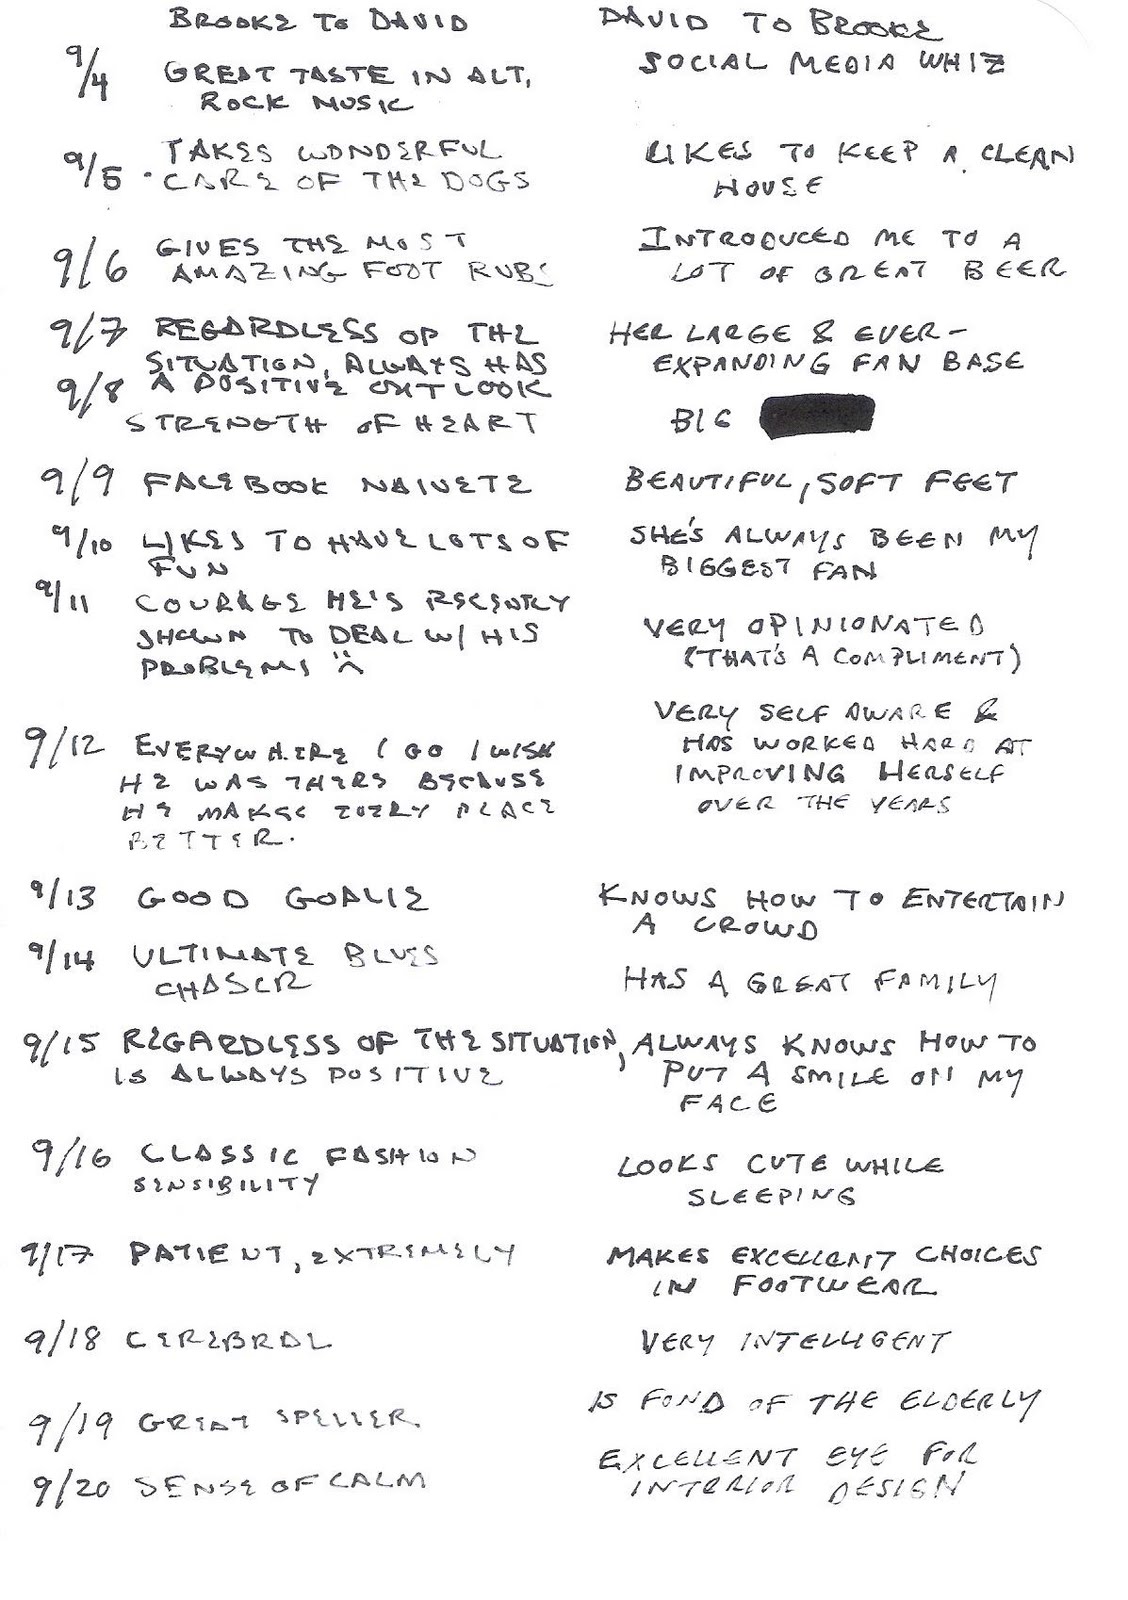 BROOKE TO DAVID
DAVID TO BROOKE
9/4 GREAT TASTE IN ALT,
ROCK MUSIC
SOCIAL MEDIA WHIZ
9/5 TAKES WONDERFUL
CARE OF THE DOGS
LIKES TO KEEP A CLEAN
HOUSE
9/6 GIVES THE MOST
AMAZING FOOT RUBS
INTRODUCED ME TO A
LOT OF GREAT BEER
9/7 REGARDLESS OF THE
SITUATION, ALWAYS HAS
A POSITIVE OUTLOOK
HER LARGE & EVER-
EXPANDING FAN BASE
9/8
STRENGTH OF HEART
BIG
9/9 FACEBOOK NAIVETE
BEAUTIFUL, SOFT FEET
9/10 LIKES TO HAVE LOTS OF
FUN
SHE'S ALWAYS BEEN MY
BIGGEST FAN
9/11 COURAGE HE'S RECENTLY
SHOWN TO DEAL W/ HIS
PROBLEMS
VERY OPINIONATED
(THAT'S A COMPLIMENT)
9/12 EVERYWHERE I GO I WISH
HE WAS THERE BECAUSE
HE MAKES EVERY PLACE
BETTER.
VERY SELF AWARE &
HAS WORKED HARD AT
IMPROVING HERSELF
OVER THE YEARS
9/13 GOOD GOALIE
KNOWS HOW TO ENTERTAIN
A CROWD
9/14 ULTIMATE BLUES
CHASER
HAS A GREAT FAMILY
9/15 REGARDLESS OF THE SITUATION,
IS ALWAYS POSITIVE
ALWAYS KNOWS HOW TO
PUT A SMILE ON MY
FACE
9/16 CLASSIC FASHION
SENSIBILITY
LOOKS CUTE WHILE
SLEEPING
9/17 PATIENT, EXTREMELY
MAKES EXCELLENT CHOICES
IN FOOTWEAR
9/18 CEREBRAL
VERY INTELLIGENT
9/19 GREAT SPELLER.
IS FOND OF THE ELDERLY
9/20 SENSE OF CALM
EXCELLENT EYE FOR
INTERIOR DESIGN